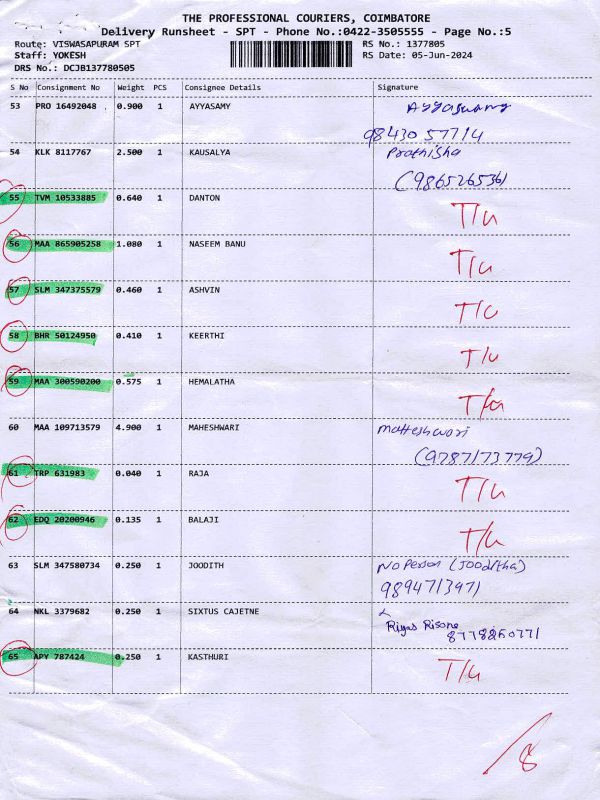 THE PROFESSIONAL COURIERS, COIMBATORE
Delivery Runsheet - SPT - Phone No.:0422-3505555 - Page No.:5
Route: VISWASAPURAM SPT RS No.: 1377805
Staff: YOKESH RS Date: 05-Jun-2024
DRS No.: DCJB137780505
S No Consignment No Weight PCS Consignee Details Signature
53 PRO 16492048 0.900 1 AYYASAMY Ayyaswamy
98430 57714
54 KLK 8117767 2.500 1 KAUSALYA Prathisha
(9865265361
55 TVM 10533885 0.640 1 DANTON T/u
56 MAA 865905258 1.080 1 NASEEM BANU T/u
57 SLM 347375579 0.460 1 ASHVIN T/u
58 BHR 50124950 0.410 1 KEERTHI T/u
59 MAA 300590200 0.575 1 HEMALATHA T/u
60 MAA 109713579 4.900 1 MAHESHWARI Maheshwari
(9787173779)
61 TRP 631983 0.040 1 RAJA T/u
62 EDQ 20200946 0.135 1 BALAJI T/u
63 SLM 347580734 0.250 1 JOODITH No Person (Jooditha)
9894713971
64 NKL 3379682 0.250 1 SIXTUS CAJETNE
8778260771
65 APY 787424 0.250 1 KASTHURI T/u